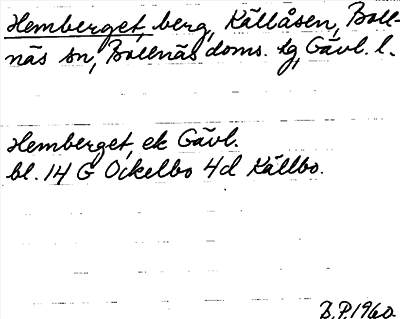 Hemberget, berg, Källåsen, Boll-
näs sn, Bollnäs doms. tg, Gävl. l.
Hemberget, ek Gävl.
bl. 14 G Ockelbo 4d Källbo.
B.P. 1960